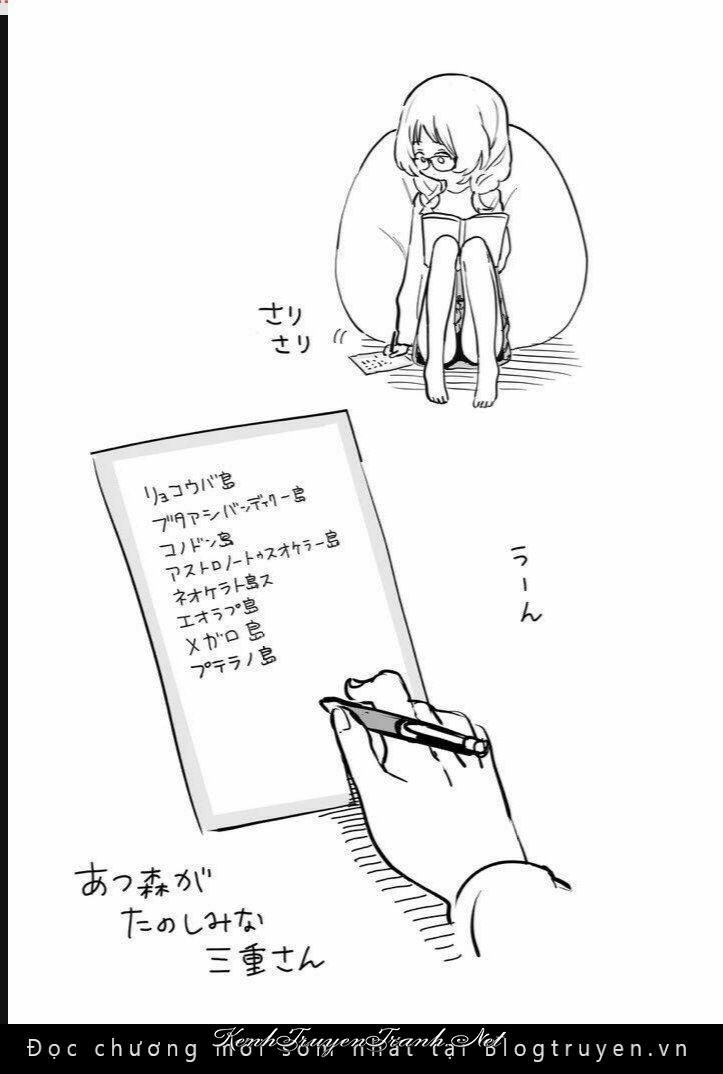 さり
さり
リョコウバ島
ブタアシバンディクー島
コノドン島
アストロノートゥスオケラー島
ネオケラト島ス
エオラプ島
メガロ島
プテラノ島
うーん
あつ森が
たのしみな
三重さん
KenhTruyenTranh.Net
Đọc chương mới sớm nhất tại Blogtruyen.vn